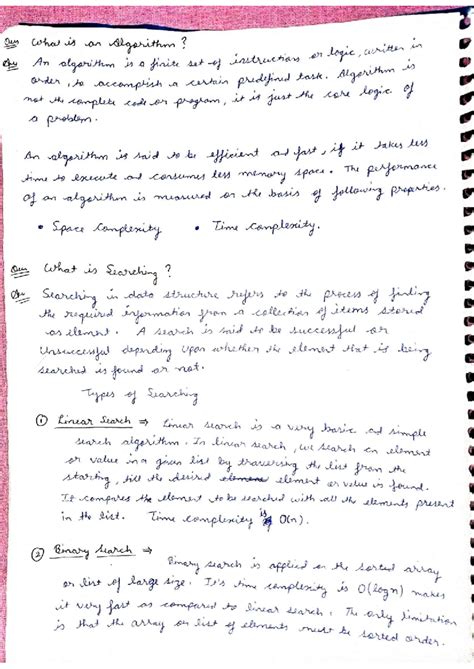 Ques What is an Algorithm ?
Ans An algorithm is a finite set of instructions or logic, written in
order, to accomplish a certain predefined task. Algorithm is
not the complete code or program, it is just the core logic of
a problem.
An algorithm is said to be efficient and fast, if it takes less
time to execute and consumes less memory space. The performance
of an algorithm is measured on the basis of following properties.
• Space Complexity • Time Complexity.
Ques What is Searching ?
Ans Searching in data structure refers to the process of finding
the required information from a collection of items stored
as element. A search is said to be successful or
Unsuccessful depending upon whether the element that is being
searched is found or not.
Types of Searching
① Linear Search ⇒ Linear search is a very basic and simple
search algorithm. In linear search, we search an element
or value in a given list by traversing the list from the
starting, till the desired element or value is found.
It compares the element to be searched with all the elements present
in the list. Time complexity is O(n).
② Binary Search ⇒
Binary search is applied on the sorted array
or list of large size. It's time complexity is O(logn) makes
it very fast as compared to linear search. The only limitation
is that the array or list of elements must be sorted order.